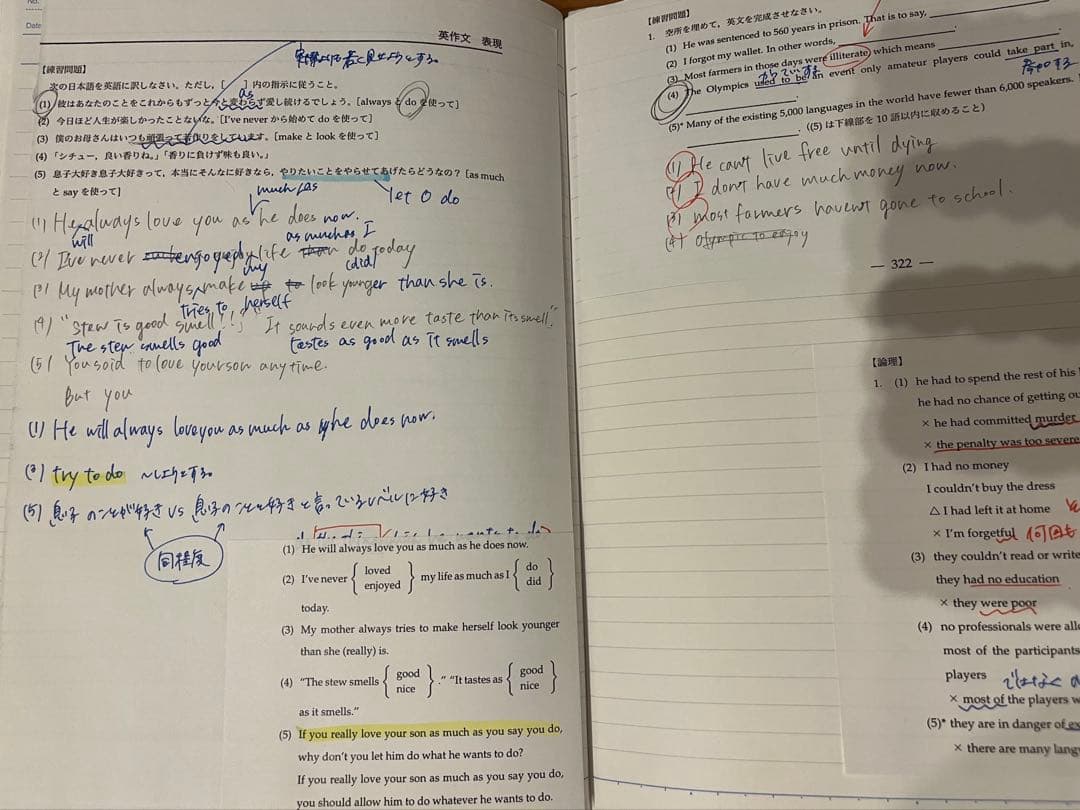 No.
Date
英作文 表現
実際よりも若く見せようとする
【練習問題】
次の日本語を英語に訳しなさい。ただし、[ ]内の指示に従うこと。
as
(1) 彼はあなたのことをこれからもずっと今と変わらず愛し続けるでしょう。[always と do を使って]
(2) 今日ほど人生が楽しかったことないな。[I've never から始めて do を使って]
(3) 僕のお母さんはいつも頑張って若作りをしています。[make と look を使って]
(4) 「シチュー,良い香りね。」「香りに負けず味も良い。」
(5) 息子大好き息子大好きって,本当にそんなに好きなら,やりたいことをやらせてあげたらどうなの?[as much
と say を使って]
much as
let O do
(1) He always love you as he does now.
will
as much as I
(2) I've never life than do today
my
(did)
(3) My mother always make up to look younger than she is.
tries to herself
(4) "Stew is good smell!!" "It sounds even more taste than its smell."
The stew smells good
tastes as good as it smells
(5) You said to love your son any time.
But you
(1) He will always love you as much as he does now.
(3) try to do ~しようとする
(5) 息子のことが好き vs 息子のことを好きと言っているレベルに好き
同程度
(1) He will always love you as much as he does now.
(2) I've never { loved enjoyed } my life as much as I { do did }
today.
(3) My mother always tries to make herself look younger
than she (really) is.
(4) "The stew smells { good nice } ." "It tastes as { good nice }
as it smells."
(5) If you really love your son as much as you say you do,
why don't you let him do what he wants to do?
If you really love your son as much as you say you do,
you should allow him to do whatever he wants to do.
【練習問題】
1. 空所を埋めて,英文を完成させなさい。
(1) He was sentenced to 560 years in prison. That is to say,
(2) I forgot my wallet. In other words,
(3) Most farmers in those days were illiterate, which means
(4) The Olympics used to be an event only amateur players could take part in,
参加する
(5)* Many of the existing 5,000 languages in the world have fewer than 6,000 speakers.
. ((5) は下線部を 10 語以内に収めること)
(1) He can't live free until dying
(2) I don't have much money now.
(3) most farmers haven't gone to school.
(4) Olympic to enjoy
— 322 —
【論理】
1. (1) he had to spend the rest of his
he had no chance of getting ou
× he had committed murder
× the penalty was too severe
(2) I had no money
I couldn't buy the dress
△ I had left it at home
× I'm forgetful 何回も
(3) they couldn't read or write
they had no education
× they were poor
(4) no professionals were allo
most of the participants
players ではなく
× most of the players w
(5)* they are in danger of ex
× there are many lang